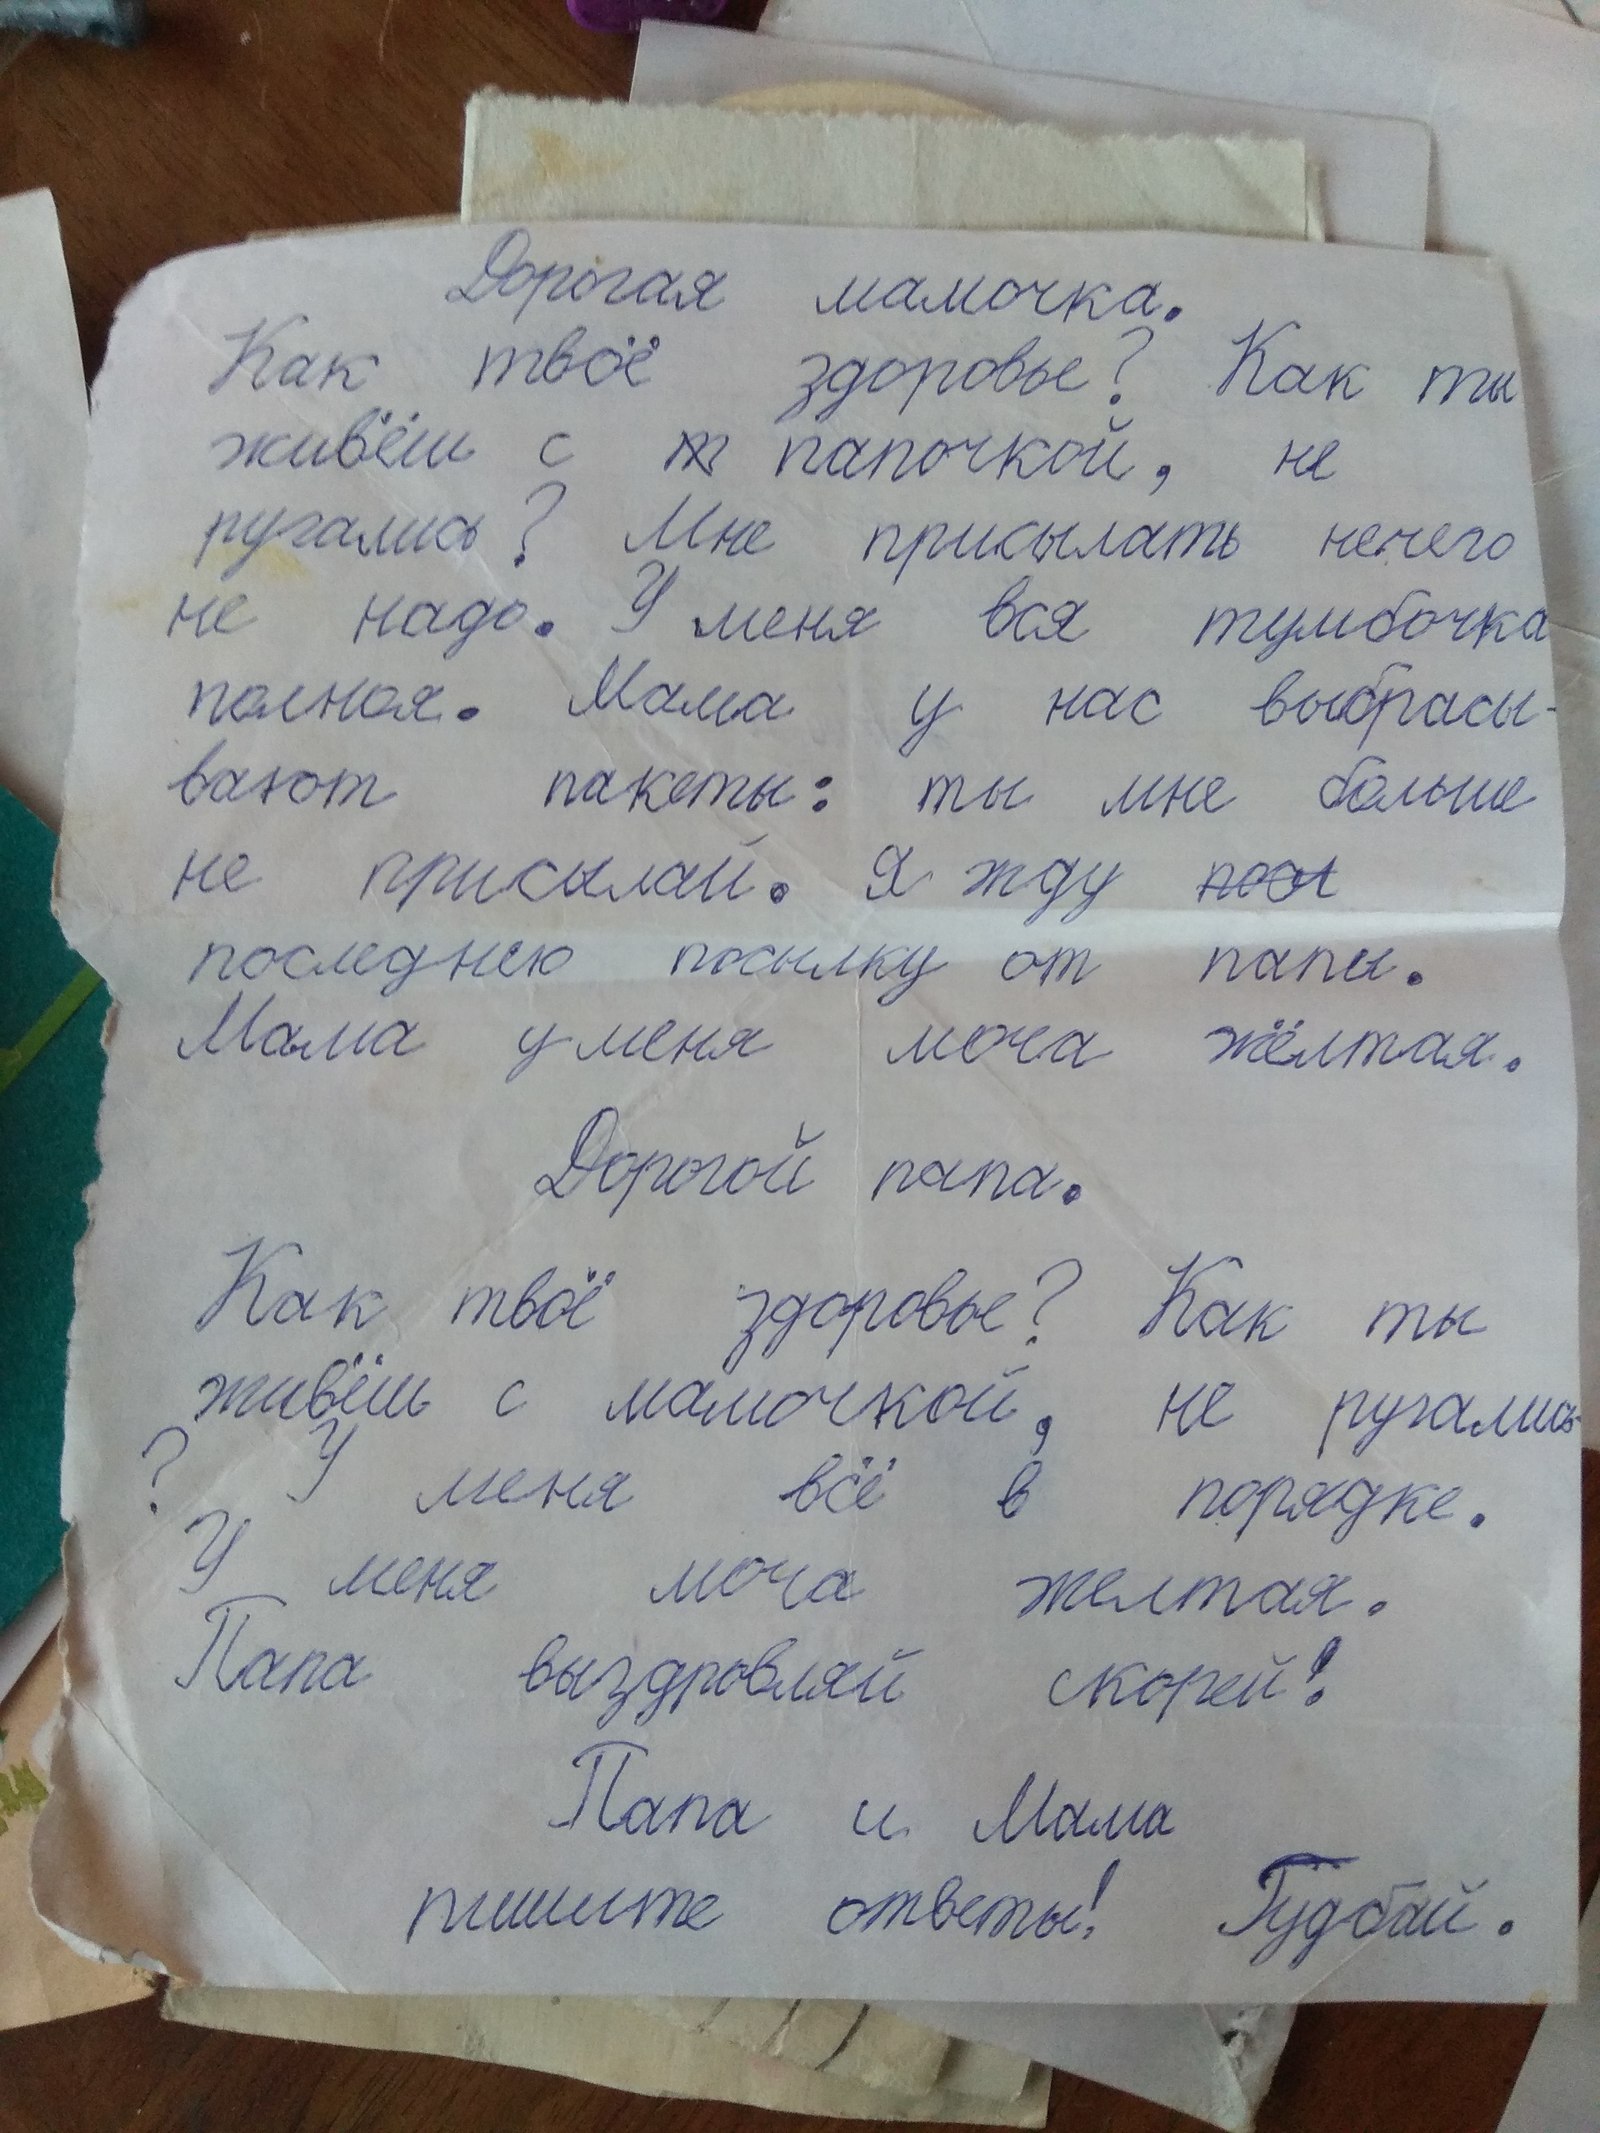 Дорогая мамочка.
Как твоё здоровье? Как ты
живёш с папочкой, не
ругались? Мне присылать нечего
не надо. У меня вся тумбочка
полная. Мама у нас выбрасы-
вают пакеты: ты мне больше
не присылай. Я жду
последнею посылку от папы.
Мама у меня моча жёлтая.
Дорогой папа.
Как твоё здоровье? Как ты
живёш с мамочкой, не ругались
? У меня всё в порядке.
У меня моча желтая.
Папа выздровляй скорей!
Папа и Мама
пишите ответы! Гудбай.